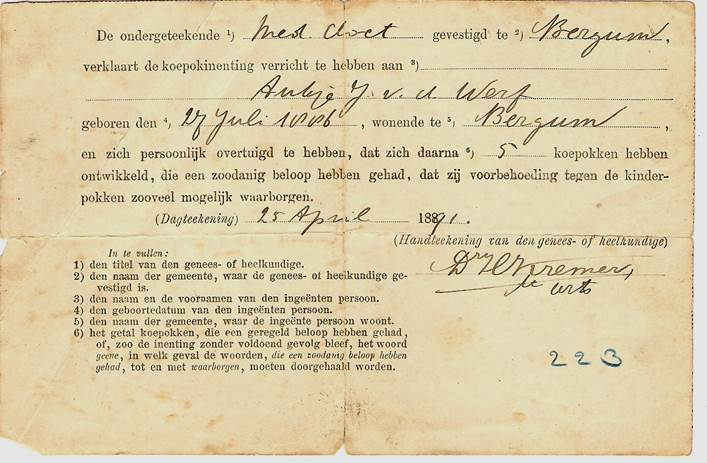 De ondergeteekende 1) Med. doct gevestigd te 2) Bergum,
verklaart de koepokinenting verricht te hebben aan 3)
Antje J. v. d. Werf
geboren den 4) 27 Juli 1886, wonende te 5) Bergum,
en zich persoonlijk overtuigd te hebben, dat zich daarna 6) 5 koepokken hebben
ontwikkeld, die een zoodanig beloop hebben gehad, dat zij voorbehoeding tegen de kinder-
pokken zooveel mogelijk waarborgen.
(Dagteekening) 25 April 1891.
(Handteekening van den genees- of heelkundige)
Kremer,
arts
In te vullen:
1) den titel van den genees- of heelkundige.
2) den naam der gemeente, waar de genees- of heelkundige ge-
vestigd is.
3) den naam en de voornamen van den ingeënten persoon.
4) den geboortedatum van den ingeënten persoon.
5) den naam der gemeente, waar de ingeënte persoon woont.
6) het getal koepokken, die een geregeld beloop hebben gehad,
of, zoo de inenting zonder voldoend gevolg bleef, het woord
geene, in welk geval de woorden, die een zoodanig beloop hebben
gehad, tot en met waarborgen, moeten doorgehaald worden.
223